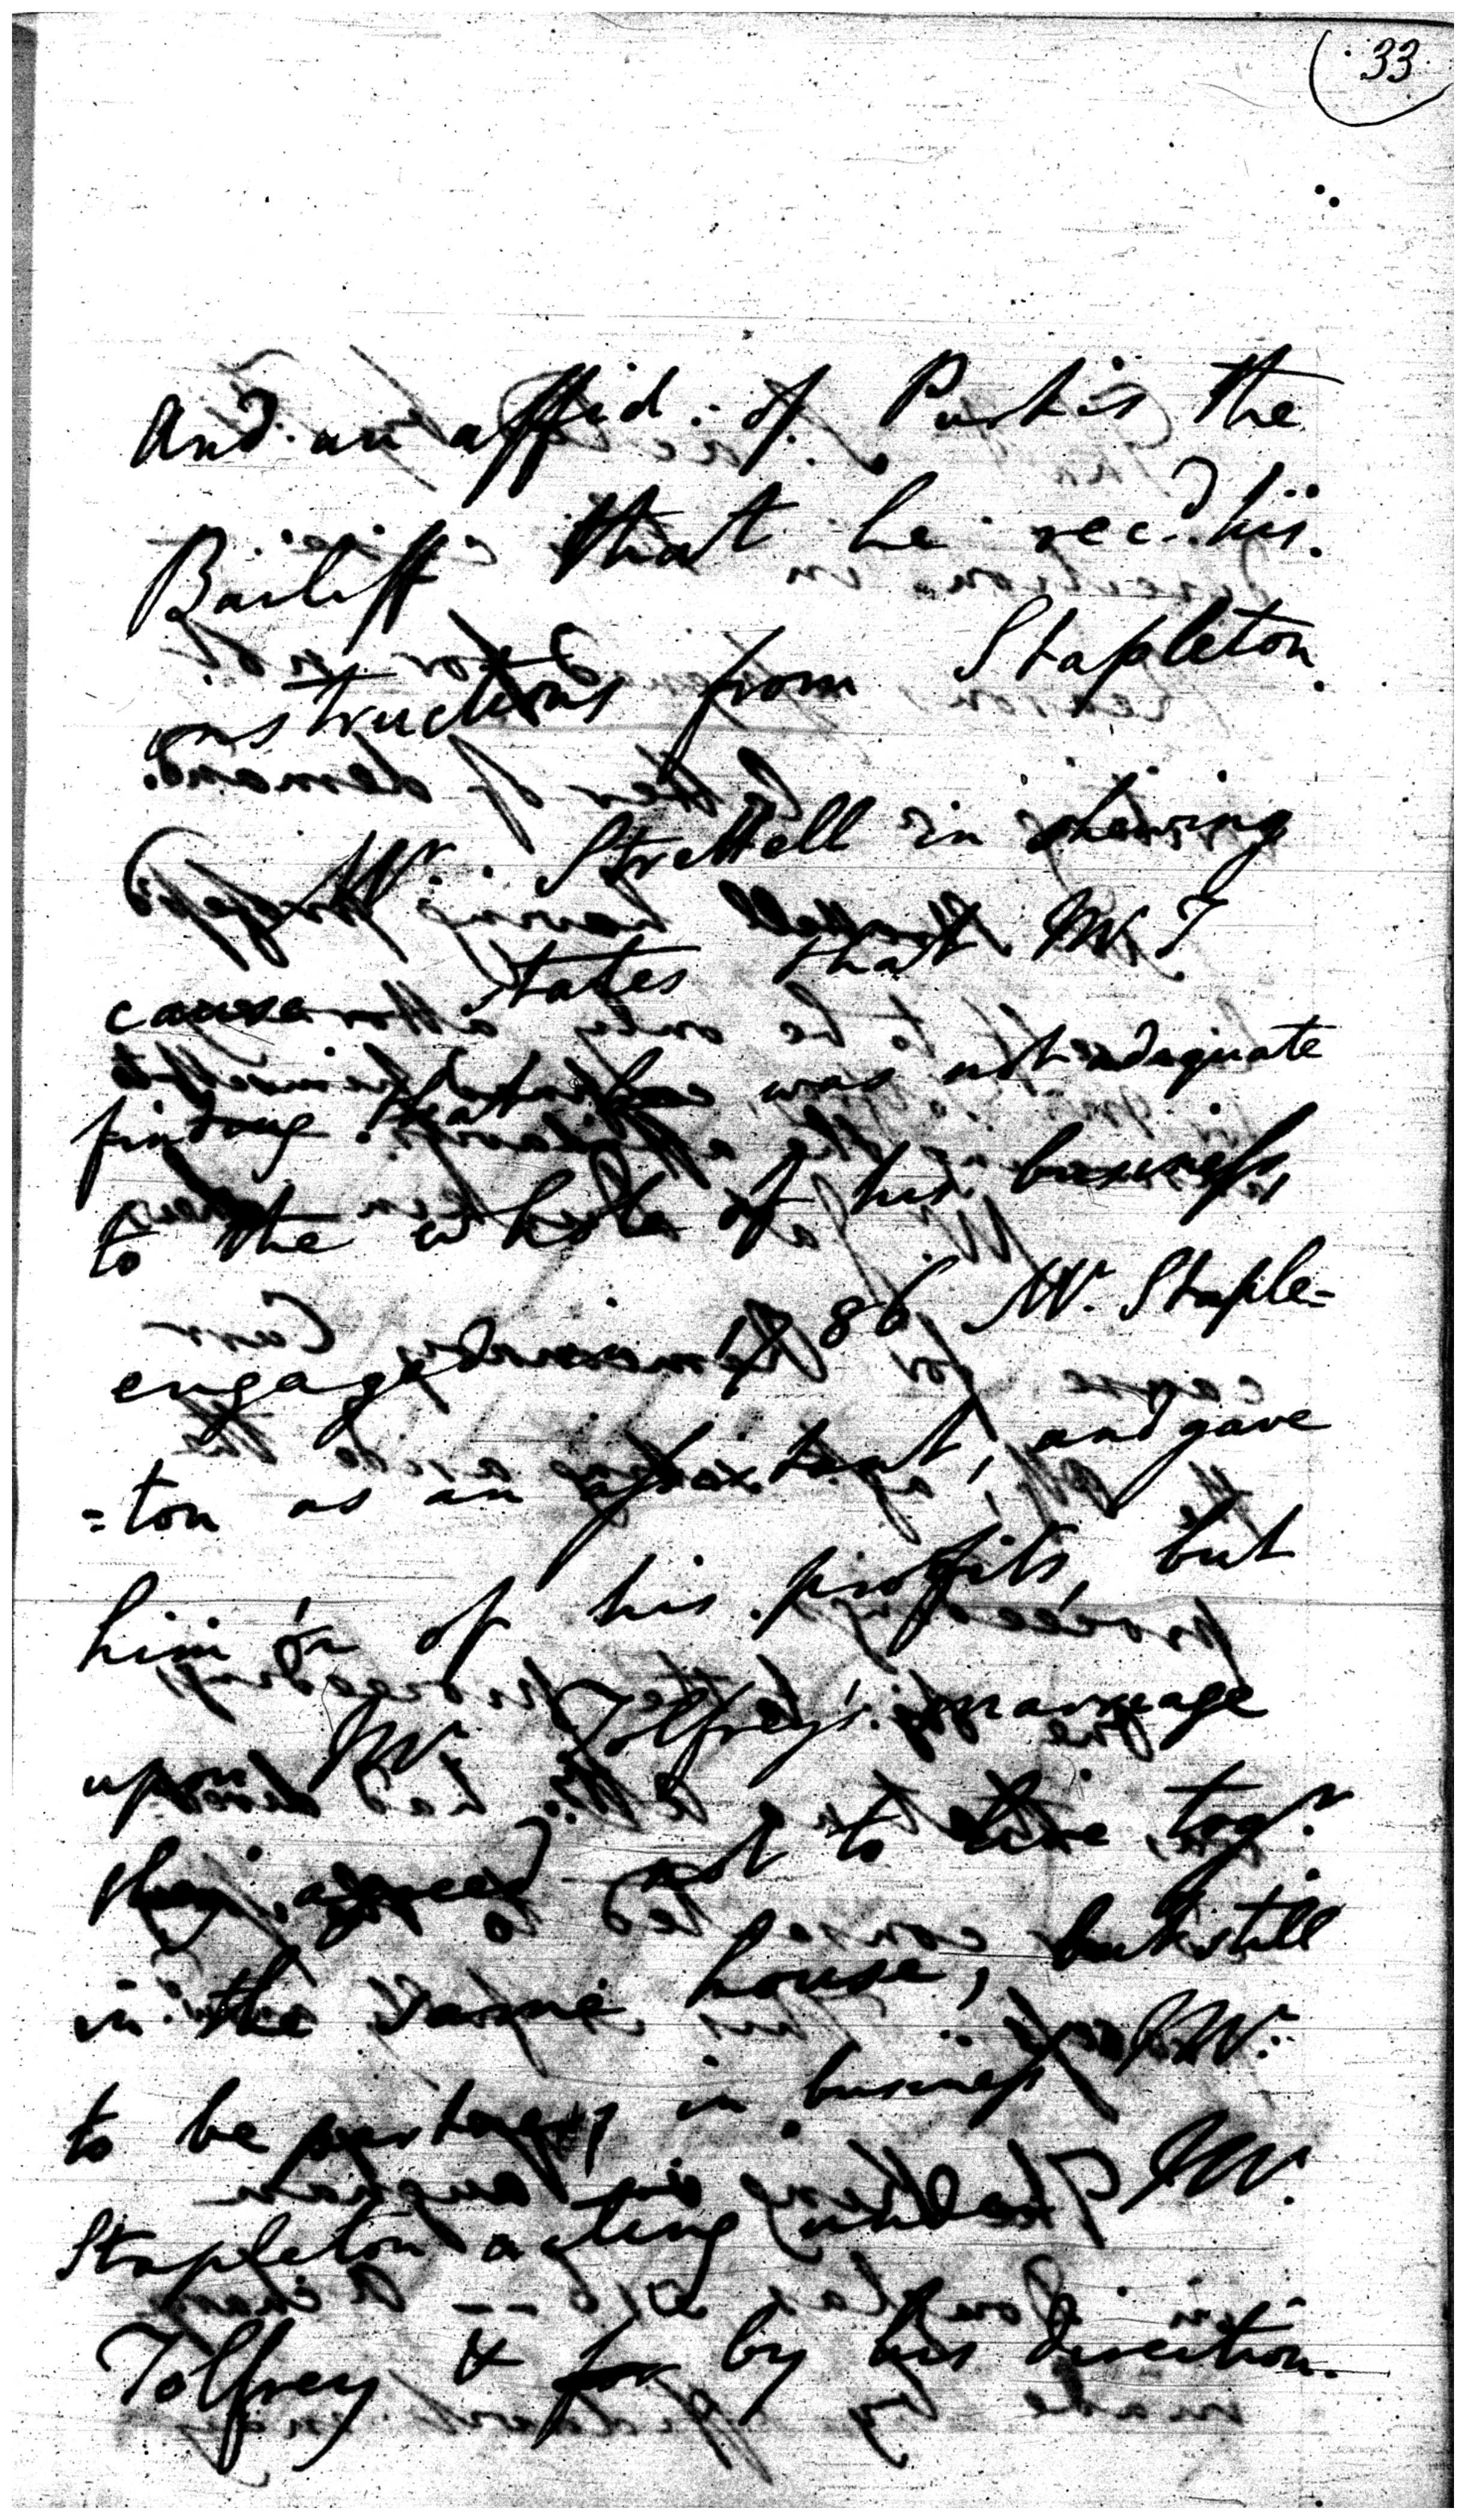 33
And an affid. of Purkis the
Bailiff that he recd. his
instructions from Stapleton.
Mr. Strettell in shewing
cause states that Mr T
finding that he was not adequate
to the whole of his business
engaged in 86 Mr. Staple=
=ton as an assistant, and gave
him ⅛ of his profits, but
upon Mr. Tolfrey's marriage
they agreed not to live togr.
in the same house, but still
to be partners in business Mr.
Stapleton acting under Mr.
Tolfrey & for by his direction.